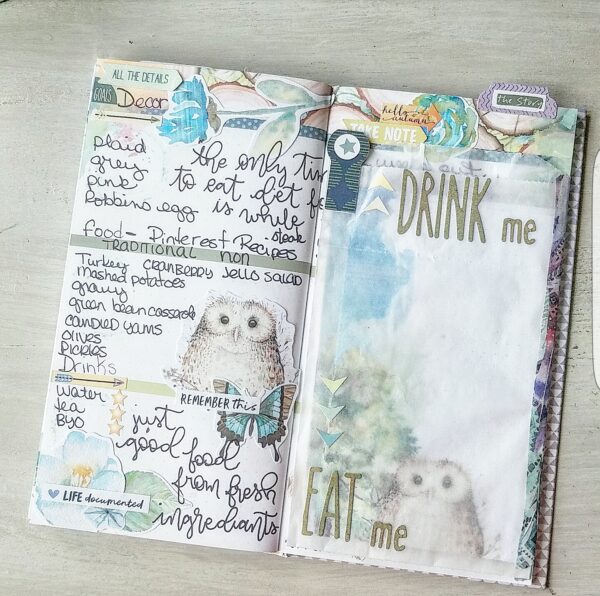 ALL THE DETAILS
GOALS
Decor
plaid
grey
pink
Robbins egg
the only tim
to eat diet fo
is while
steak
Food - Pinterest Recipes
TRADITIONAL non
Turkey CRANBERRY Jello SALAD
mashed potatoes
gravy
green bean casserole
candied yams
Olives
Pickles
Drinks
water
tea
BYO
REMEMBER this
just
good food
from fresh
ingredients
LIFE documented
the Story
hello
autumn
TAKE NOTE
DRINK me
EAT me